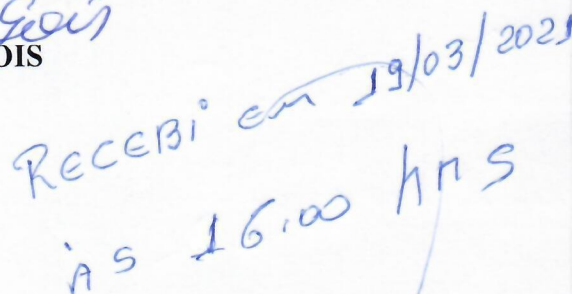 OIS
RECEBi em 19/03/2021
às 16.00 hrs